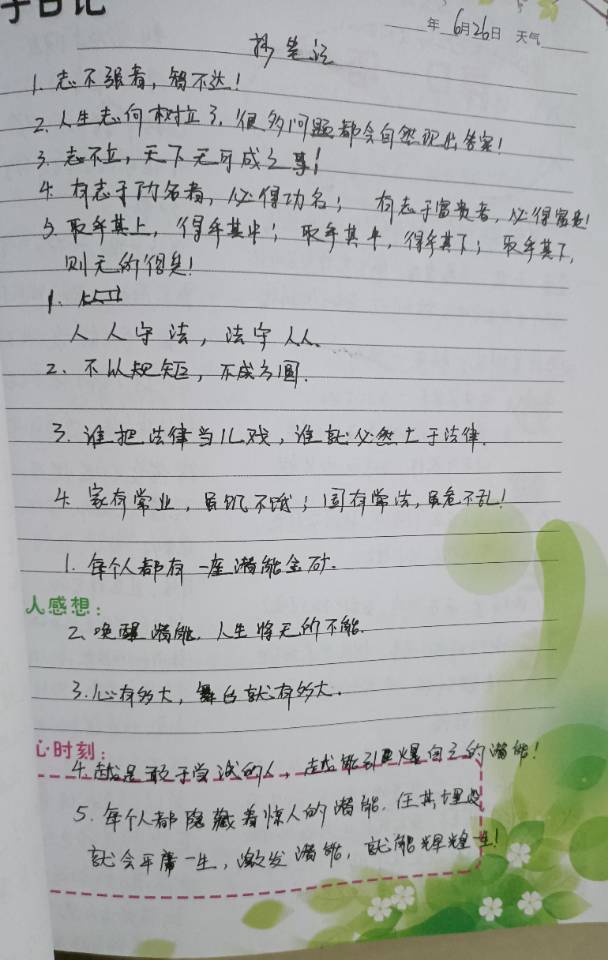 日记
年 6月26日 天气
抄笔记
1. 志不强者，智不达！
2. 人生志向树立了，很多问题都会自然现出答案！
3. 志不立，天下无可成之事！
4. 有志于功名者，必得功名；有志于富贵者，必得富贵！
5. 取乎其上，得乎其中；取乎其中，得乎其下；取乎其下，
则无所得矣！
1.
人人守法，法守人人.
2. 不以规矩，不成方圆.
3. 谁把法律当儿戏，谁就必然亡于法律.
4. 家有常业，虽饥不饿；国有常法，虽危不乱！
1. 每个人都有一座潜能金矿.
人感想：
2. 唤醒潜能，人生将无所不能.
3. 心有多大，舞台就有多大.
心时刻：
4. 越是敢于尝试的人，越能引爆自己的潜能！
5. 每个人都隐藏着惊人的潜能，任其埋没
就会平庸一生，激发潜能，就能辉煌一生！